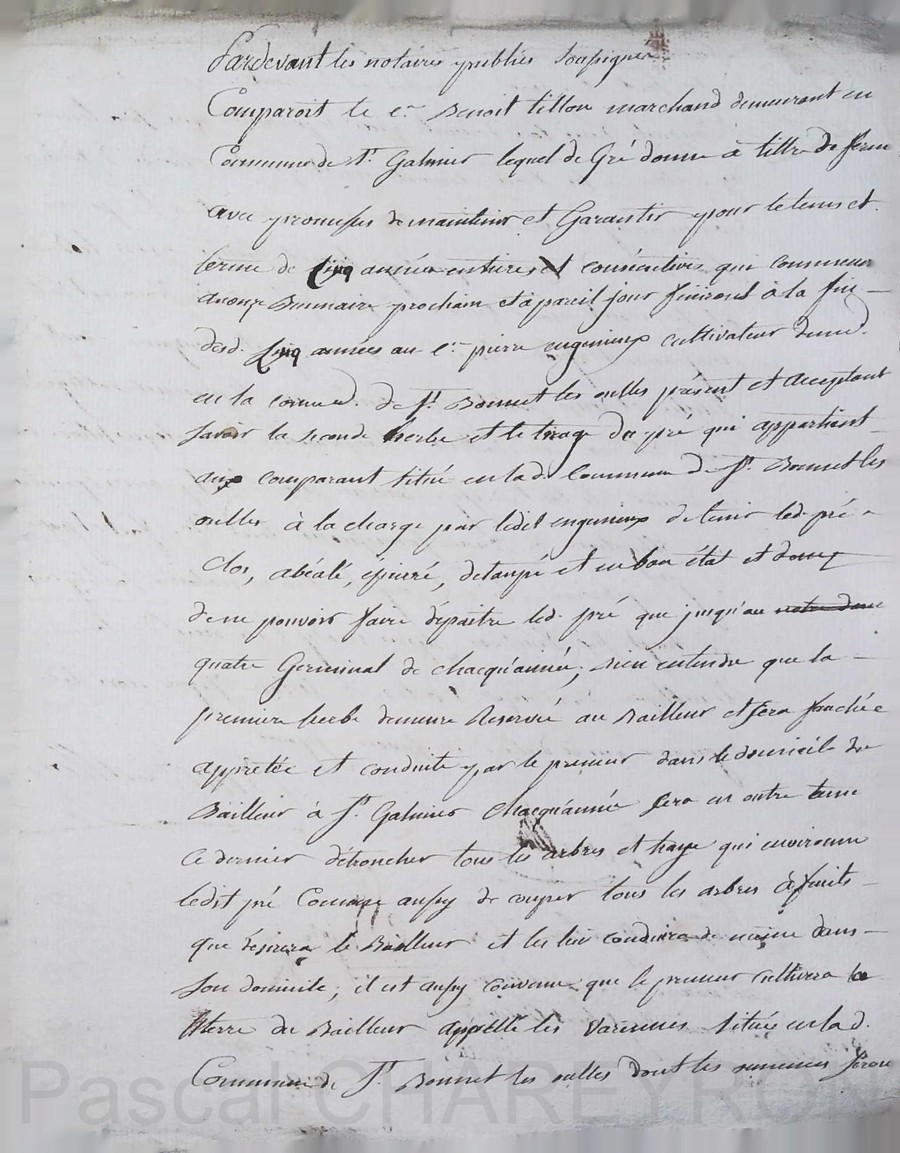 Pardevant les notaires publics soussignés
Comparoit le c.en Benoit tillon marchand demeurant en
Commune de S.t Galmier lequel de Gré donne à tittre de ferme
avec promesses de maintenir et Garantir pour le tems et
terme de Cinq années entieres et consécutives qui commencer
a onze Brumaire prochain et à pareil jour finiront à la fin
desd. Cinq années au c.en pierre enjenieux cultivateur demt.
en la comme. de S.t Bonnet les oulles présent et acceptant
savoir la seconde herbe et le tirage du pré qui appartient
aux comparant situé en lad. Commune de S.t Bonnet les
oulles à la charge par ledit engenieux de tenir led. pré
Clos, abéalé, épierré, detaupé et en bon état et
de ne pouvoir faire dépaitre led. pré que jusqu'au notre dame
quatre Germinal de chacqu'année, bien entendu que la
premiere herbe demeure Reservée au Bailleur et sera fauchée
apprêtée et conduite par le preneur dans le domicile du
Bailleur à S.t Galmier chacqu'année sera en outre tenu
Ce dernier débrancher tous les arbres et haye qui environne
ledit pré Comme aussy de couper tous les arbres à fruits
que désirera le Bailleur et les lui conduira de même dans
son domicile; il est aussy convenu que le preneur cultivera la
terre du Bailleur appellé les Varennes située en lad.
Commune de S.t Bonnet les oulles dont les semences seron
Pascal CHAREYRON